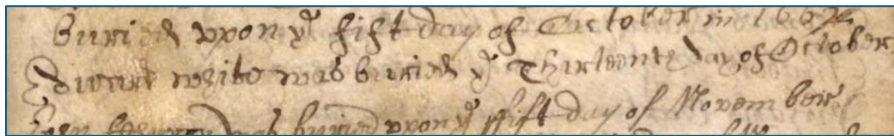 buried vpon ye fift day of October in 1667
Edward white was buried ye Thirteenth day of October
was buried vpon ye ffift day of November